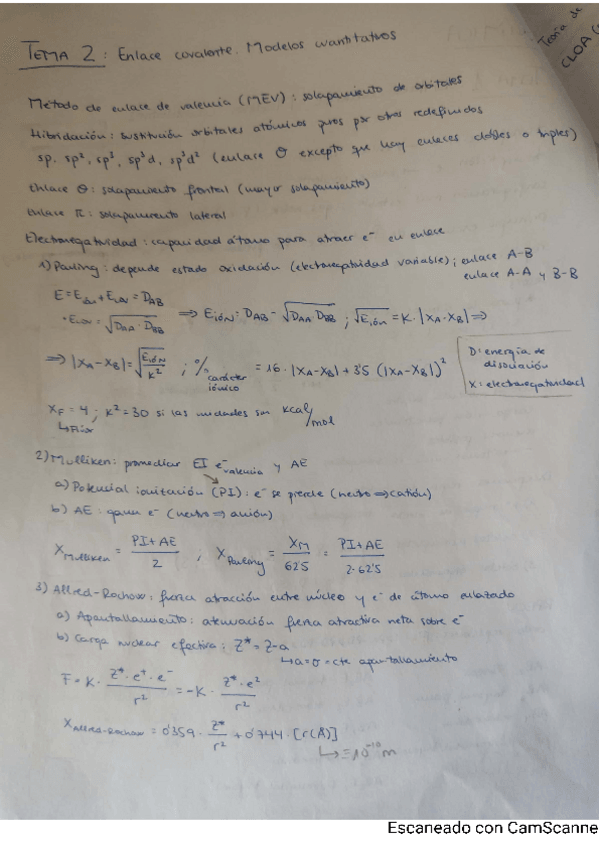 Teoría de
CLOA (
TEMA 2: Enlace covalente. Modelos cuantitativos
Método de enlace de valencia (MEV): solapamiento de orbitales
Hibridación: sustitución orbitales atómicos puros por otros redefinidos
sp, sp², sp³, sp³d, sp³d² (enlace σ excepto que hay enlaces dobles o triples)
Enlace σ: solapamiento frontal (mayor solapamiento)
Enlace π: solapamiento lateral
Electronegatividad: capacidad átomo para atraer e⁻ en enlace
1) Pauling: depende estado oxidación (electronegatividad variable); enlace A-B
enlace A-A y B-B
E = E ión + E cov = D AB
· E cov = √(D AA · D BB) ⇒ E ión = D AB - √(D AA · D BB) ; √E ión = K · |X A - X B| ⇒
⇒ |X A - X B| = √(E ión / K²) ; % carácter iónico = 16 · |X A - X B| + 3'5 (|X A - X B|)²
D: energía de
disociación
X: electronegatividad
X F = 4 ; K² = 30 si las unidades son kcal/mol
↳ Flúor
2) Mulliken: promediar EI e⁻ valencia y AE
a) Potencial ionización (PI): e⁻ se pierde (neutro ⇒ catión)
b) AE: gana e⁻ (neutro ⇒ anión)
X Mulliken = (PI + AE) / 2 ; X Pauling = X M / 62'5 = (PI + AE) / 2·62'5
3) Allred-Rochow: fuerza atracción entre núcleo y e⁻ de átomo enlazado
a) Apantallamiento: atenuación fuerza atractiva neta sobre e⁻
b) Carga nuclear efectiva: Z* = Z - a
↳ a = σ = cte apantallamiento
F = K · (Z* · e⁺ · e⁻) / r² = -K · (Z* · e²) / r²
X Allred-Rochow = 0'359 · Z* / r² + 0'744 · [r(Å)]
↳ = 10⁻¹⁰ m
Escaneado con CamScanne